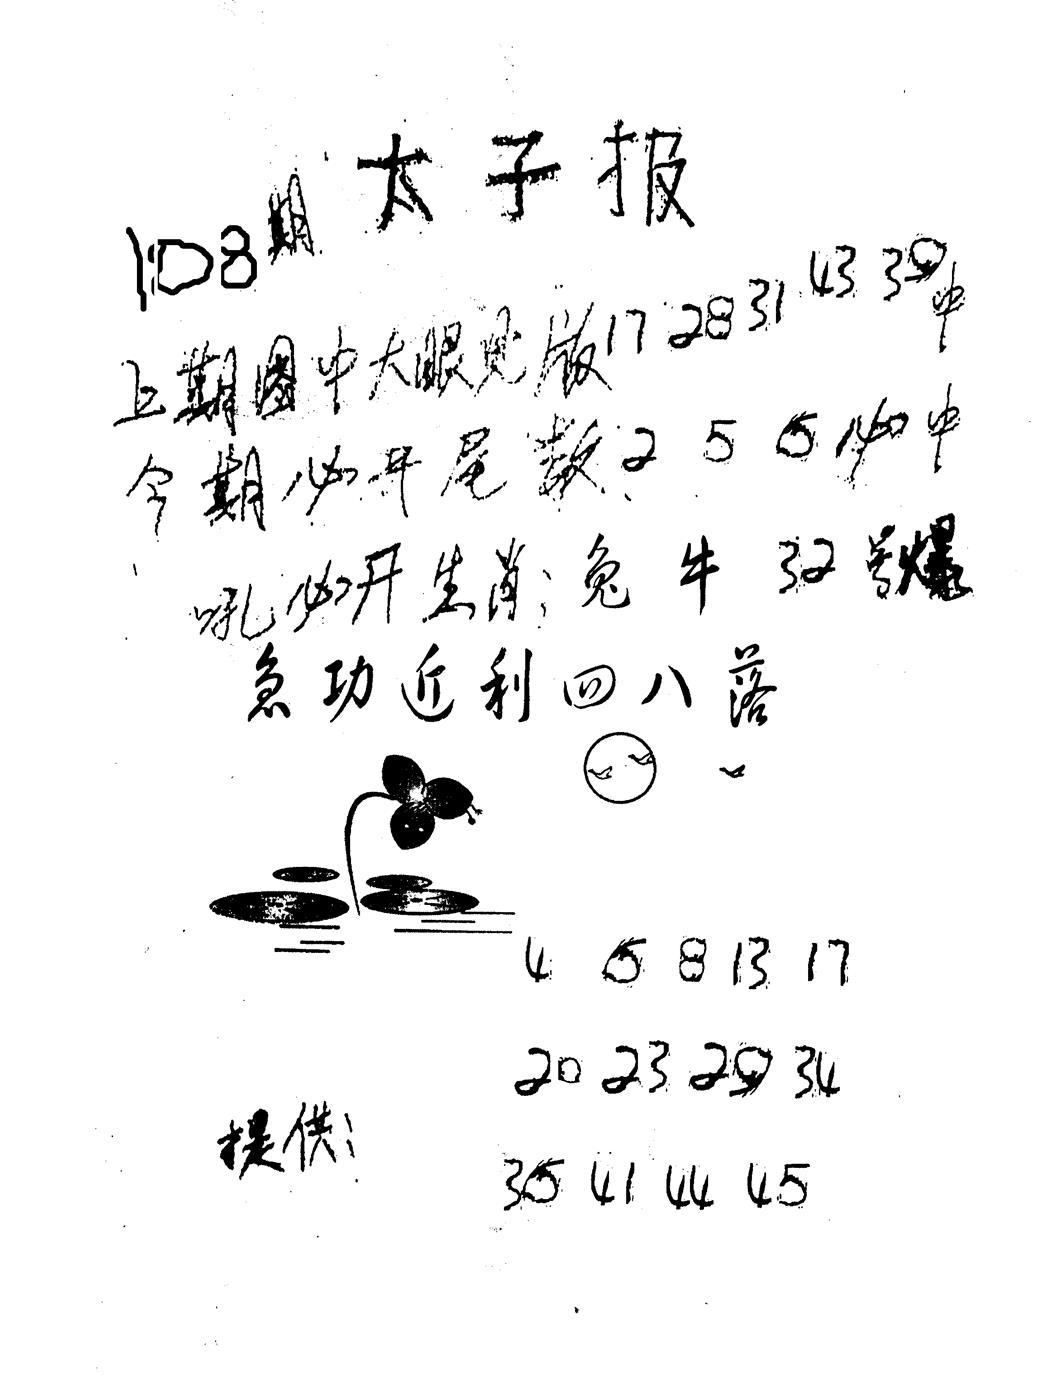 太子报
108期
上期图中大眼见版17 28 31 43 39中
今期必开尾数2 5 6必中
吼必开生肖:兔 牛 32号爆
急功近利四八落
4 6 8 13 17
20 23 29 34
提供:
36 41 44 45